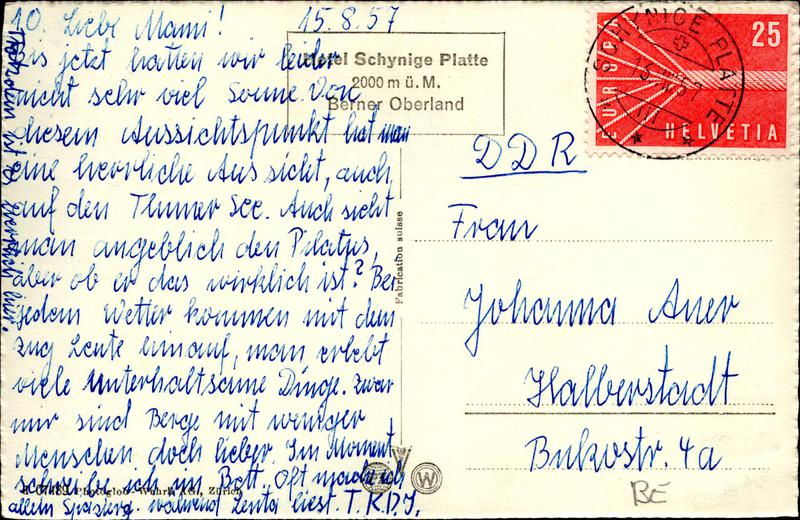 10. Liebe Mami! 15.8.57
Bis jetzt hatten wir leider
nicht sehr viel Sonne. Von
diesem Aussichtspunkt hat man
eine herrliche Aussicht, auch
auf den Thuner See. Auch sieht
man angeblich den Pilatus,
aber ob er das wirklich ist? Bei
jedem Wetter kommen mit dem
Zug Leute hinauf, man erlebt
viele unterhaltsame Dinge. Zwar
mir sind Berge mit weniger
Menschen doch lieber. Im Moment
schreibe ich im Bett. Oft mache ich
allein Spazierg. während Lenta liest. T. K. D. J.
Trotzdem ist es herrlich hier.
Hotel Schynige Platte
2000 m ü. M.
Berner Oberland
SCHYNIGE PLATTE
EUROPA
25
HELVETIA
Fabrication suisse
DDR
Frau
Johanna Auer
Halberstadt
Bukostr. 4a
BE
W
Photoglob-Wehrli A.G., Zürich